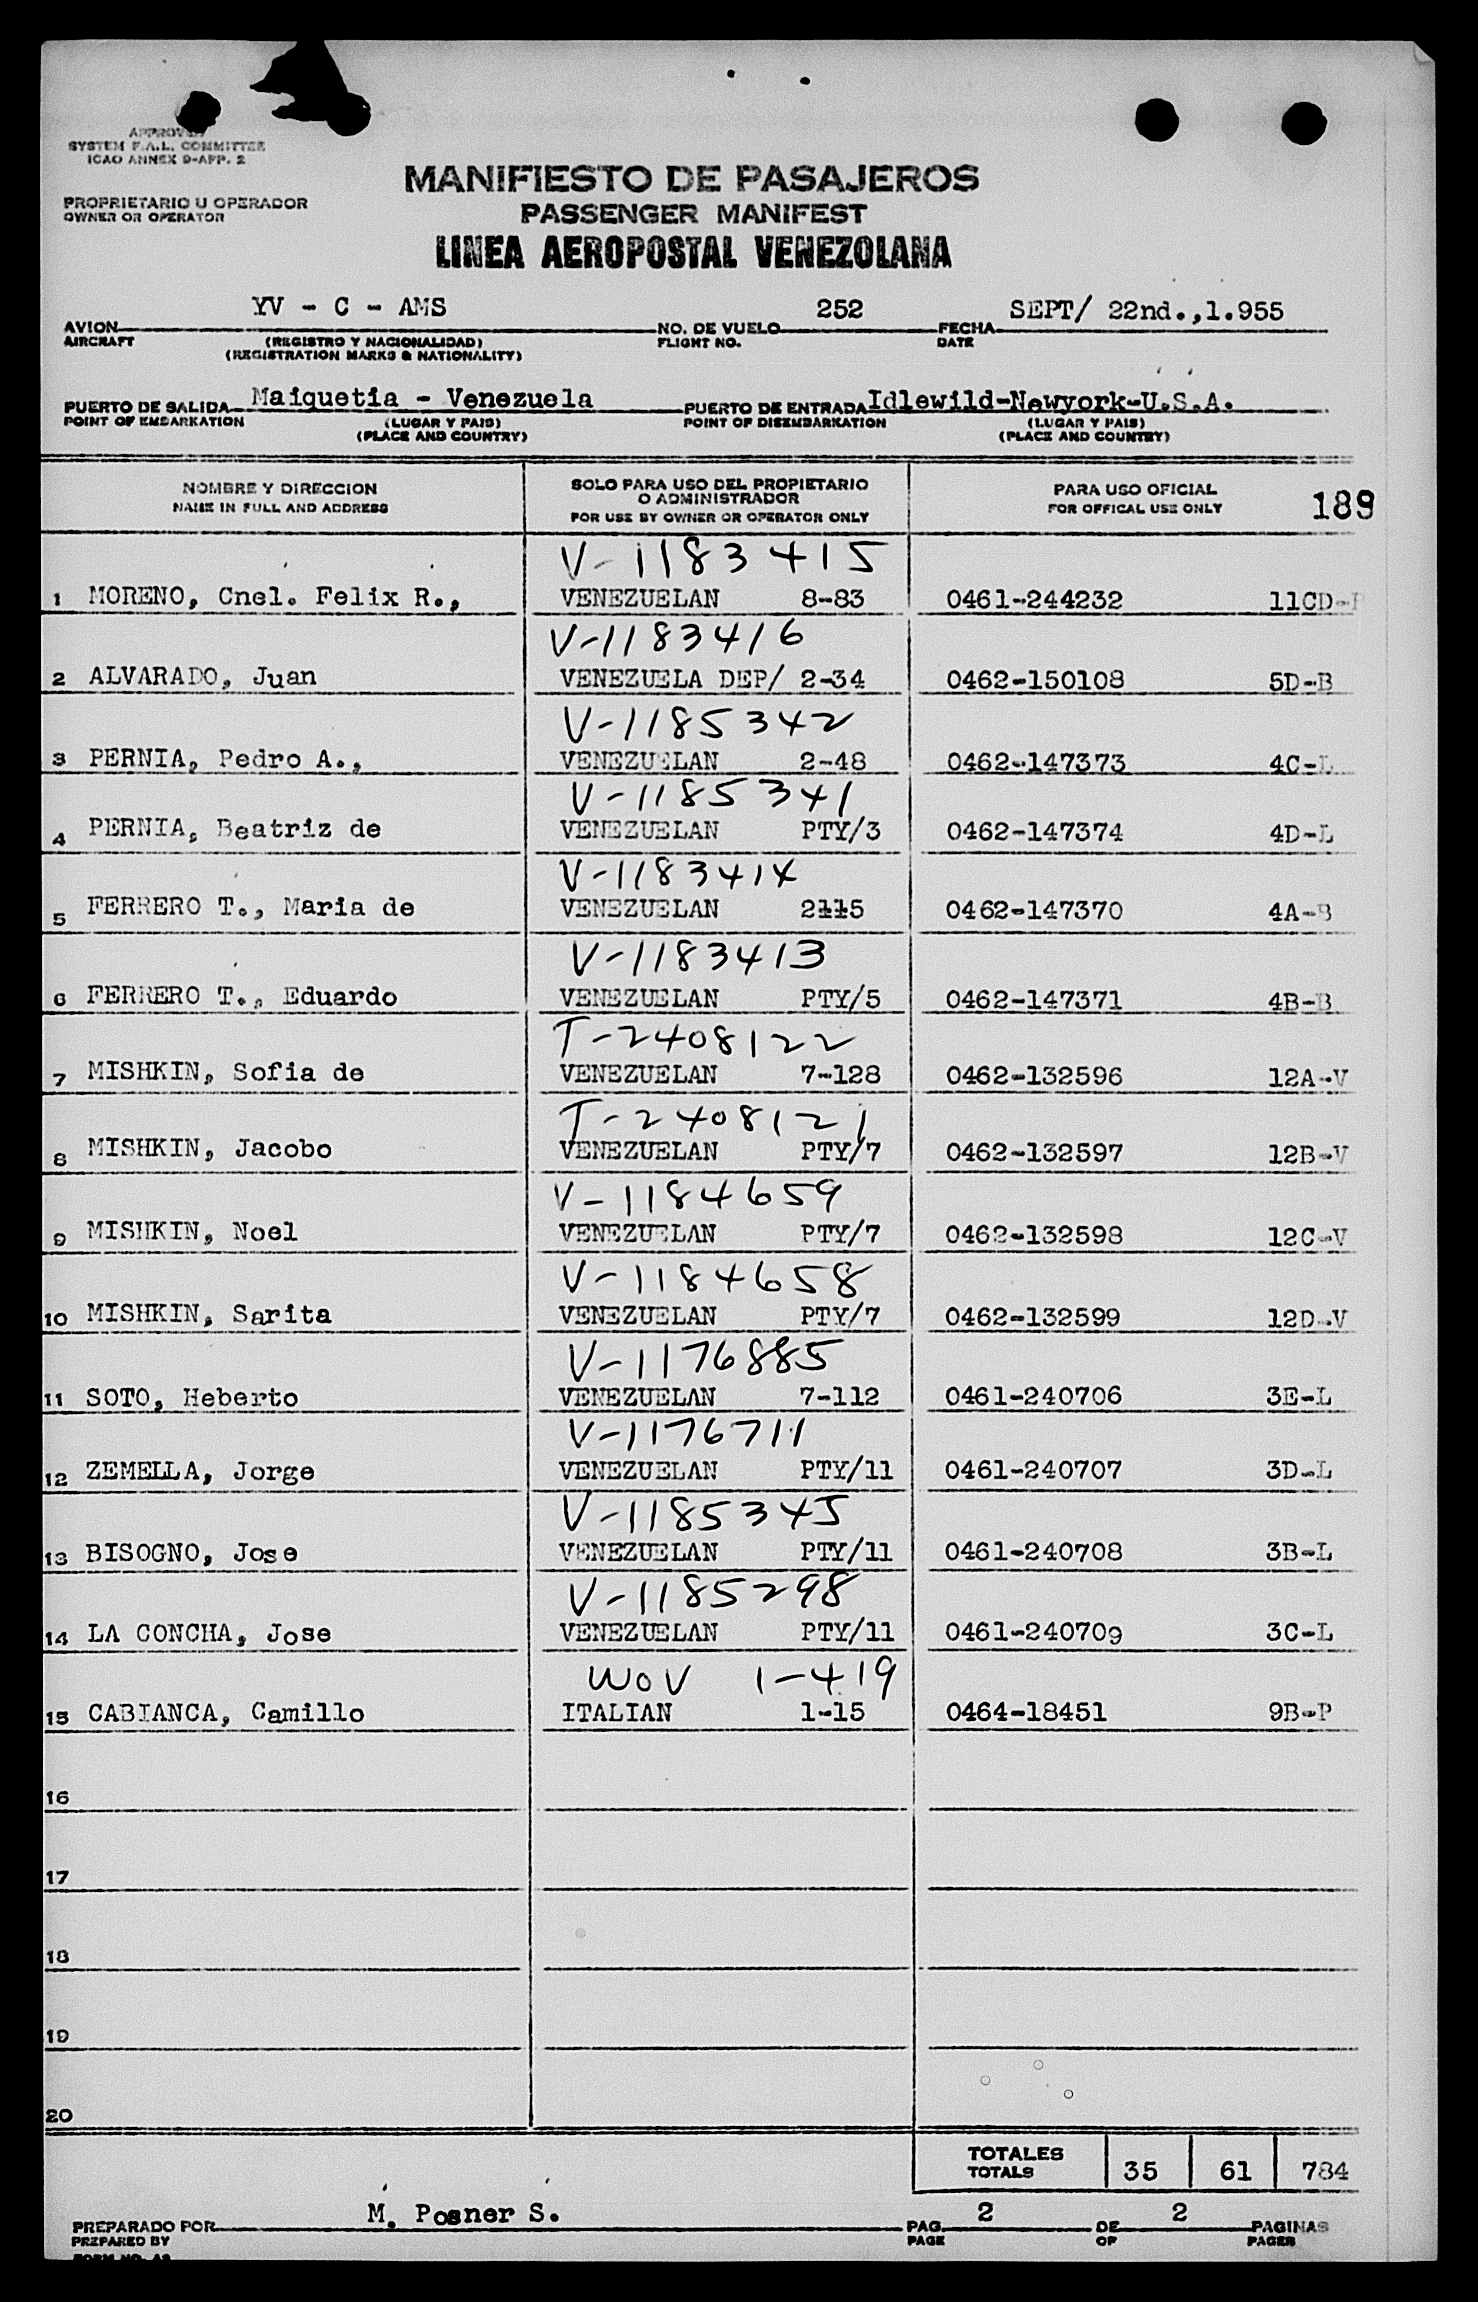 APPROVED
SYSTEM F.A.L. COMMITTEE
ICAO ANNEX 9-APP. 2
MANIFIESTO DE PASAJEROS
PROPRIETARIO U OPERADOR
OWNER OR OPERATOR
PASSENGER MANIFEST
LINEA AEROPOSTAL VENEZOLANA
YV - C - AMS 252 SEPT/ 22nd.,1.955
AVION NO. DE VUELO FECHA
AIRCRAFT (REGISTRO Y NACIONALIDAD) FLIGHT NO. DATE
(REGISTRATION MARKS & NATIONALITY)
Maiquetia - Venezuela Idlewild-Newyork-U.S.A.
PUERTO DE SALIDA PUERTO DE ENTRADA
POINT OF EMBARKATION (LUGAR Y PAIS) POINT OF DISEMBARKATION (LUGAR Y PAIS)
(PLACE AND COUNTRY) (PLACE AND COUNTRY)
NOMBRE Y DIRECCION SOLO PARA USO DEL PROPIETARIO PARA USO OFICIAL 189
O ADMINISTRADOR
NAME IN FULL AND ADDRESS FOR USE BY OWNER OR OPERATOR ONLY FOR OFFICAL USE ONLY
V-1183415
1 MORENO, Cnel. Felix R., VENEZUELAN 8-83 0461-244232 11CD-P
V-1183416
2 ALVARADO, Juan VENEZUELA DEP/ 2-34 0462-150108 5D-B
V-1185342
3 PERNIA, Pedro A., VENEZUELAN 2-48 0462-147373 4C-L
V-1185341
4 PERNIA, Beatriz de VENEZUELAN PTY/3 0462-147374 4D-L
V-1183414
5 FERRERO T., Maria de VENEZUELAN 0462-147370 4A-B
V-1183413
6 FERRERO T., Eduardo VENEZUELAN PTY/5 0462-147371 4B-B
T-2408122
7 MISHKIN, Sofia de VENEZUELAN 7-128 0462-132596 12A-V
T-2408121
8 MISHKIN, Jacobo VENEZUELAN PTY/7 0462-132597 12B-V
V-1184659
9 MISHKIN, Noel VENEZUELAN PTY/7 0462-132598 12C-V
V-1184658
10 MISHKIN, Sarita VENEZUELAN PTY/7 0462-132599 12D-V
V-1176885
11 SOTO, Heberto VENEZUELAN 7-112 0461-240706 3E-L
V-1176711
12 ZEMELLA, Jorge VENEZUELAN PTY/11 0461-240707 3D-L
V-1185345
13 BISOGNO, Jose VENEZUELAN PTY/11 0461-240708 3B-L
V-1185298
14 LA CONCHA, Jose VENEZUELAN PTY/11 0461-240709 3C-L
WOV 1-419
15 CABIANCA, Camillo ITALIAN 1-15 0464-18451 9B-P
16
17
18
19
20
TOTALES
TOTALS 35 61 784
M. Posner S. 2 2
PREPARADO POR PAG. DE PAGINAS
PREPARED BY PAGE OF PAGES
FORM NO. A2